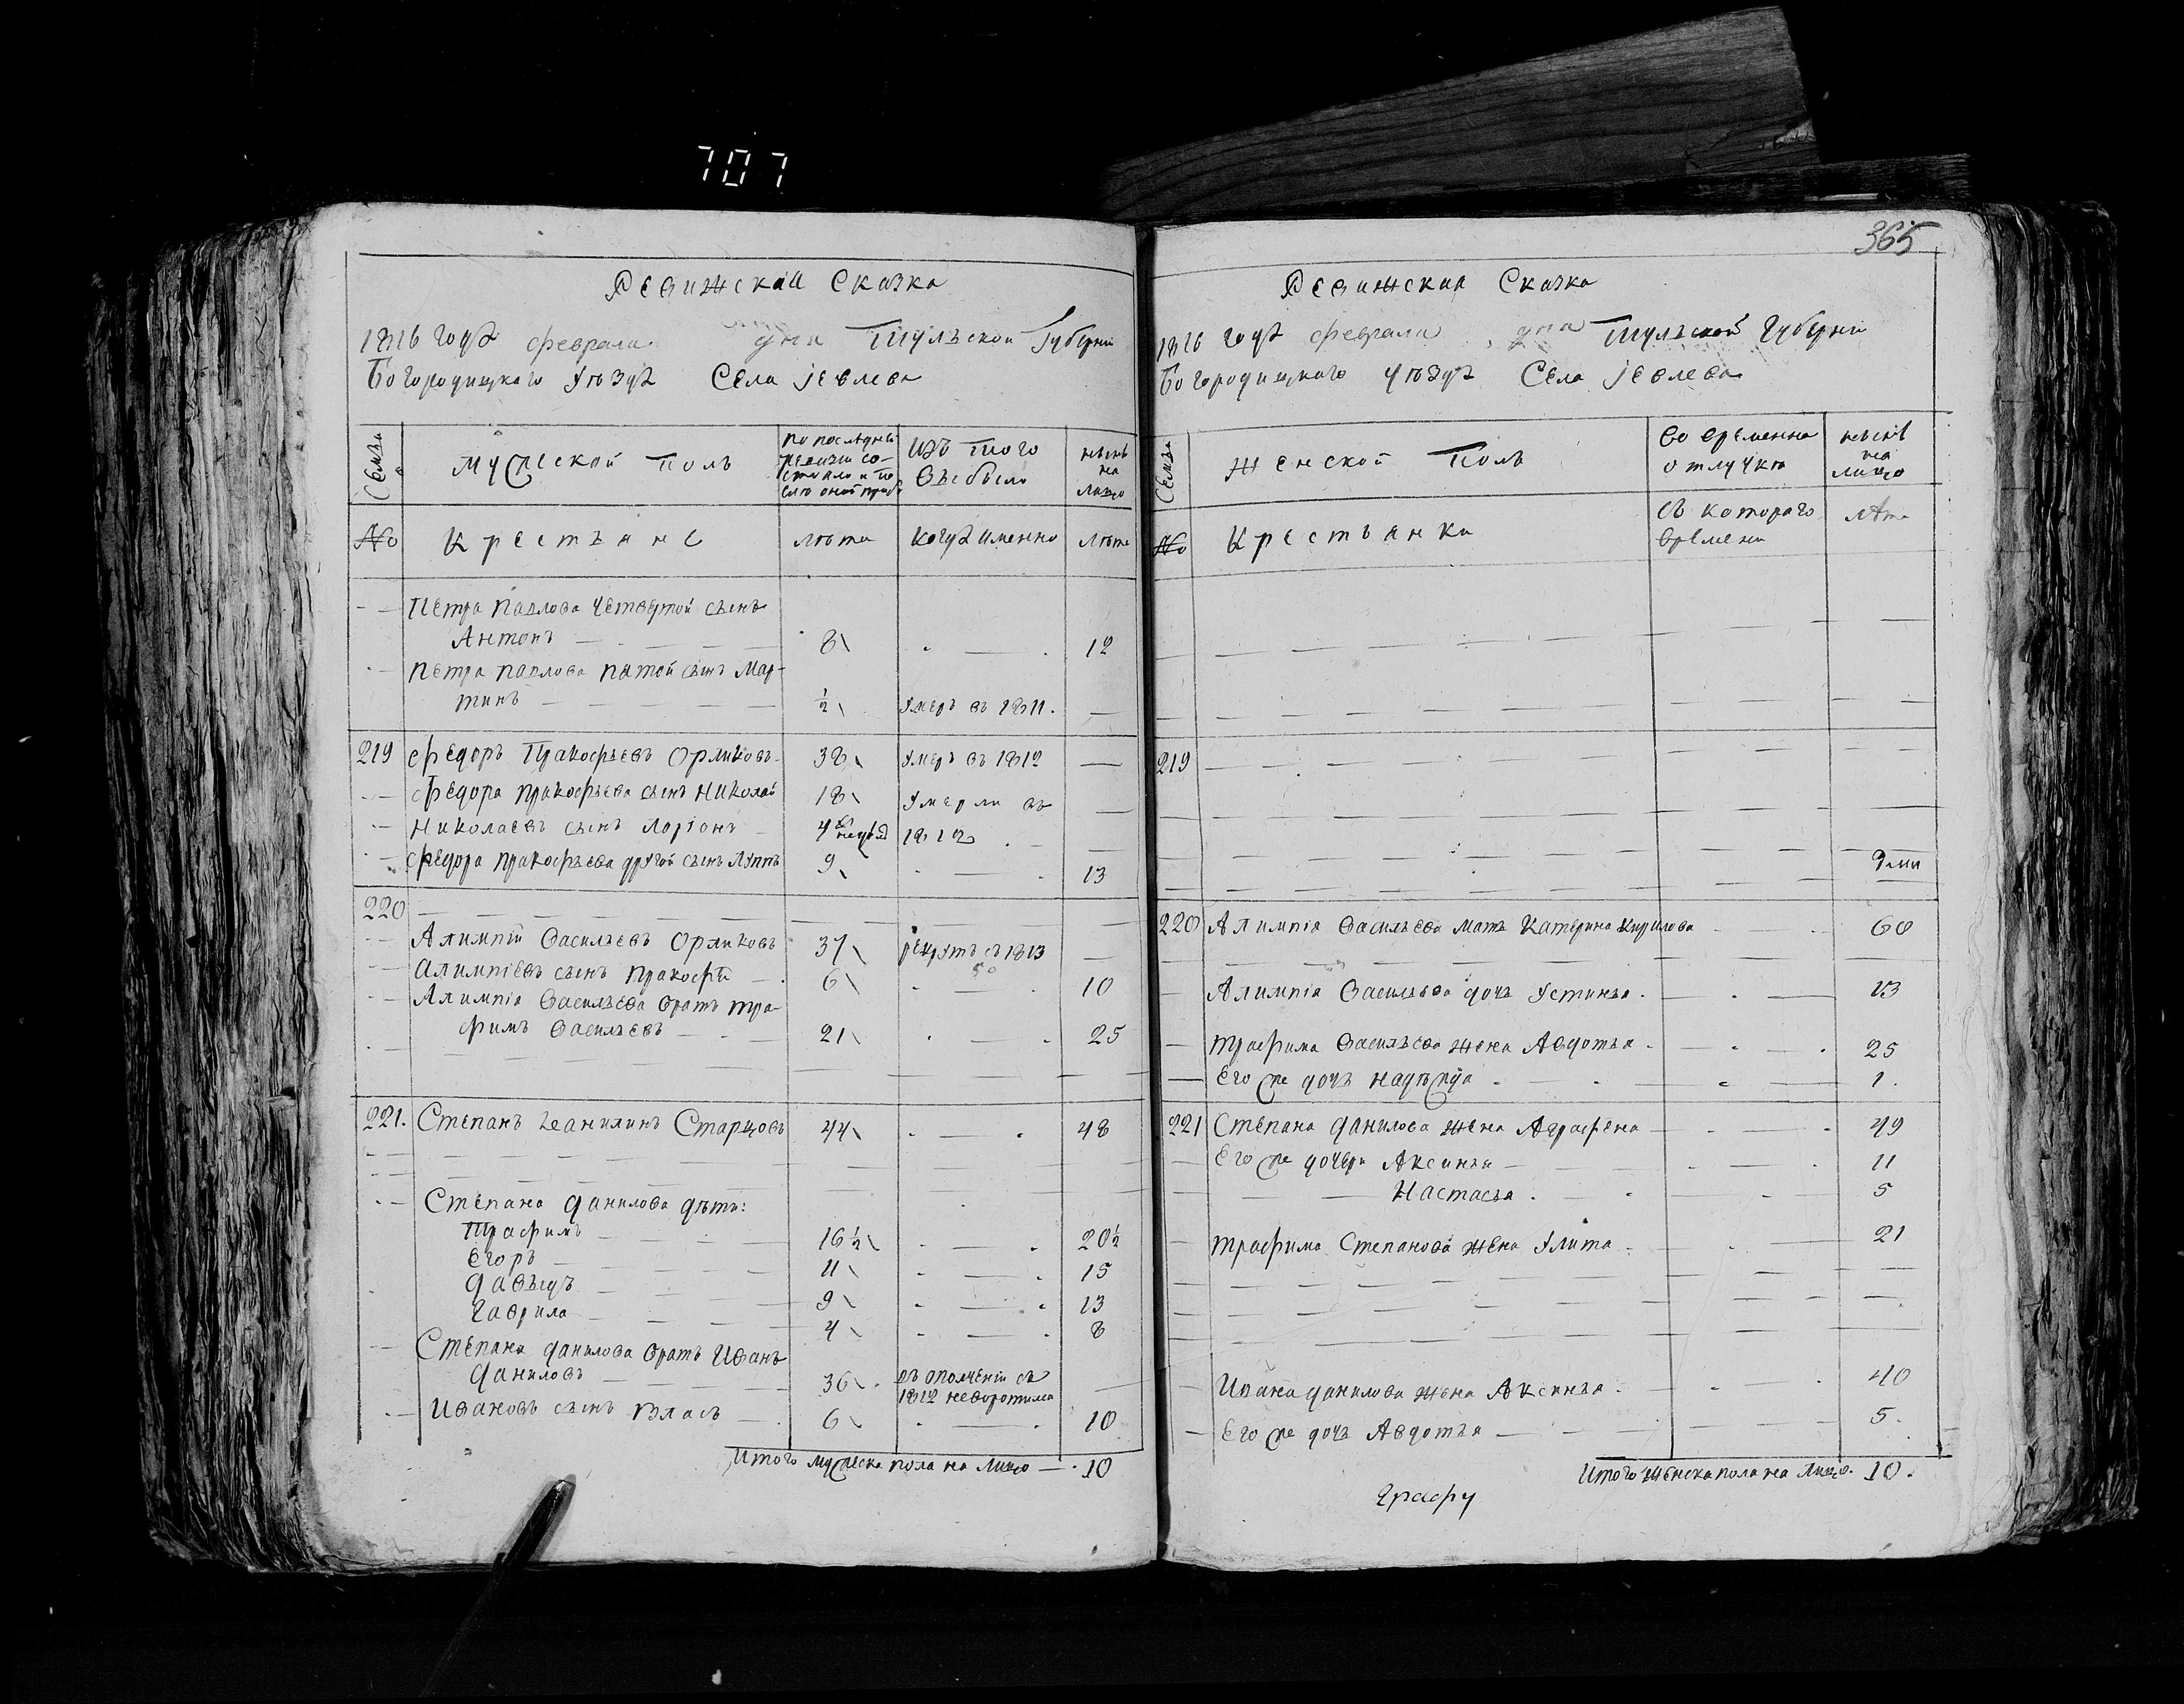 707
365
Ревижская Сказка
1816 года февраля дня Тульской Губерни
Богородицкаго Уѣзда Села Іевлева
Семьи
Мужеской полъ
по последней ревизи состояло и после оной прибы
Изъ того выбыло
ныне на лицо
№
Крестьяне
лѣта
когда именно
лѣта
Петра Павлова четвертой сынъ
Антонъ 8 12
Петра Павлова пятой сынъ Мар-
тинъ ½ умеръ въ 1811.
219 Федоръ Пракофьевъ Орликовъ 38 умеръ въ 1812
Федора Пракофьева сынъ Николай 18 умерли въ
Николаевъ сынъ Ларіонъ 4 недѣль 1812
Федора Пракофьева другой сынъ Луппъ 9 13
220
Алимпій Васильевъ Орликовъ 37 рекрутъ с 1813
Алимпіевъ сынъ Пракофій 6 10
Алимпія Васильева братъ Тра-
фимъ Васильевъ 21 25
221. Степанъ Данилинъ Старцовъ 44 48
Степана Данилова дѣти:
Трафимъ 16½ 20½
Егоръ 11 15
Давыдъ 9 13
Гаврила 4 8
Степана Данилова братъ Иванъ
Даниловъ 36 въ ополченіи съ
1812 невороти​лса
Ивановъ сынъ Власъ 6 10
Итого мужеска пола на лицо 10
Ревижская Сказка
1816 года февраля дня Тульской Губерни
Богородицкаго Уѣзда Села Іевлева
Семьи
Женской Полъ
Во временна отлучкѣ
ныне на лицо
№
Крестьянки
съ котораго времени
лѣта
219
220 Алимпія Васильева мать Катерина Кирилова 60
Алимпія Васильева дочь Устинья 13
Трафима Васильева жена Авдотья 25
Его же дочь Надѣжда 1.
221 Степана Данилова жена Аграфена 49
Его же дочери Аксинья 11
Настасья 5
Трафима Степанова жена Улита 21
Ивана Данилова жена Аксинья 40
Его же дочь Авдотья 5.
Итого женска пола на лицо. 10.
Графу